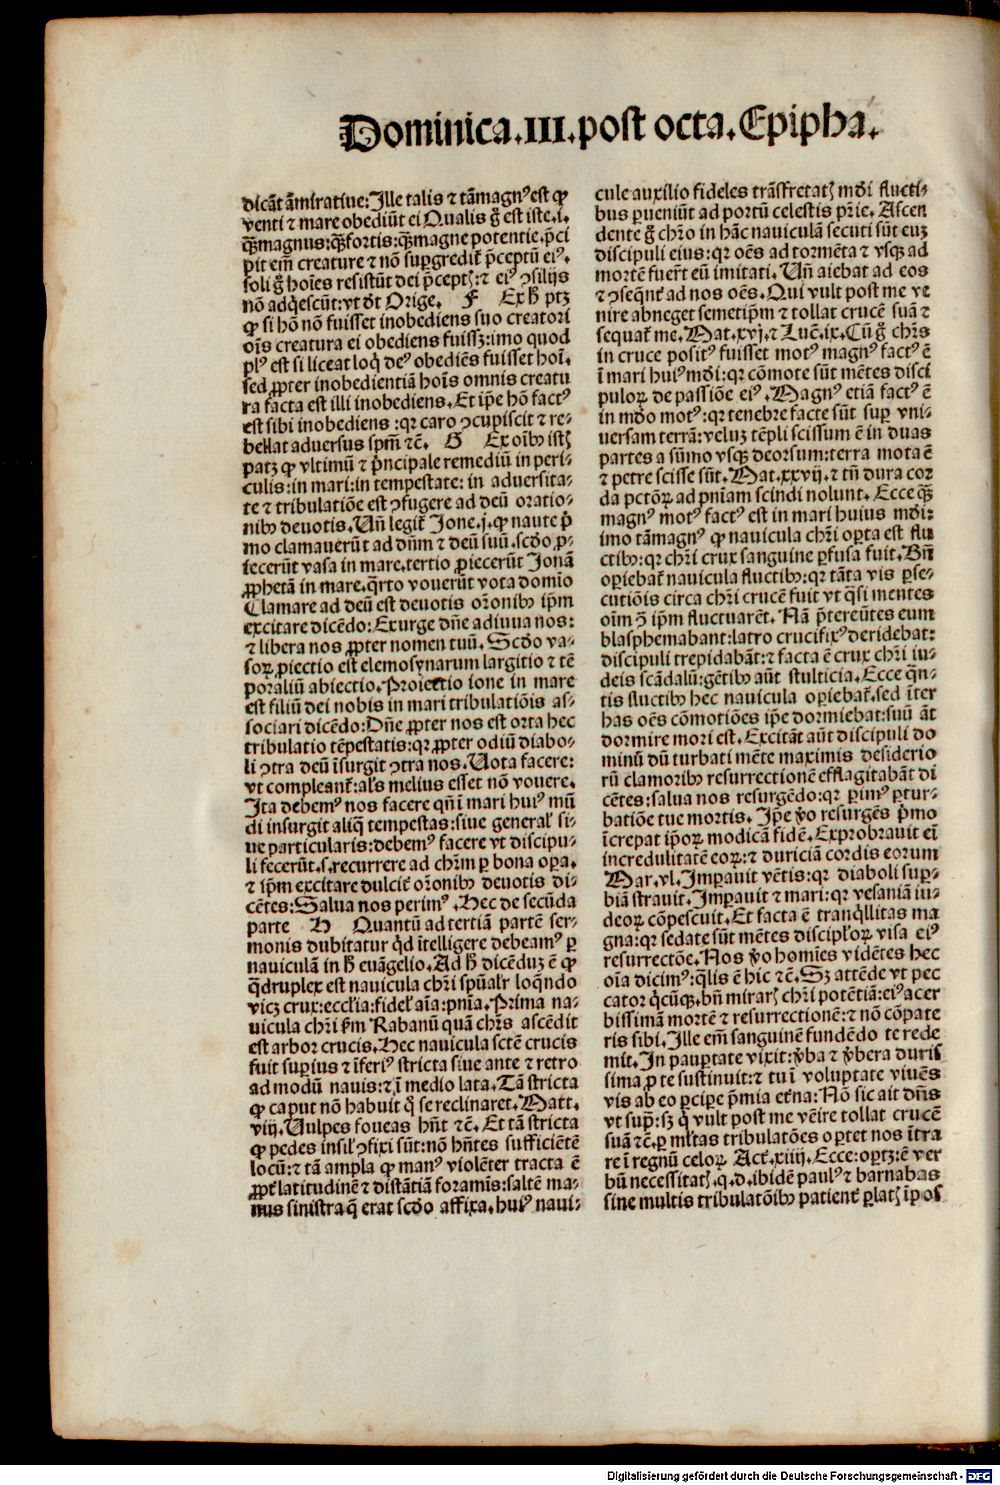 Dominica.III.post octa.Epipha.
dicāt āmirative:Ille talis ⁊ tāmagnꝰ est ꝙ
venti ⁊ mare obediūt ei Qualis g̃ est iste.i.
q̄ꝫmagnus:q̄ꝫfortis:q̄ꝫmagne potentie.p̄ci
pit em̄ creature ⁊ nō suꝑgredit̃ p̄ceptū eiꝰ.
soli g̃ hoīes resistūt dei p̄ceptꝭ:⁊ eiꝰ ꝯsilijs
nō adq̄escūt:vt dt̄ Orige. F Ex hͦ ptꝫ
ꝙ si hō nō fuisset inobediens suo creatori
oīs creatura ei obediens fuissꝫ:imo quod
plꝰ est si liceat loq̄ deꝰ obediēs fuisset hoī.
sed ꝓpter inobedientiā hoīs omnis creatu
ra facta est illi inobediens.Et ip̄e hō factꝰ
est sibi inobediens :qꝛ caro ꝯcupiscit ⁊ re⸗
bellat adversus spm̄ ⁊c̄. G Ex oībꝰ istꝭ
patꝫ ꝙ vltimū ⁊ p̄ncipale remediū in peri⸗
culis:in mari:in tempestate: in aduersita⸗
te ⁊ tribulatiōe est ꝯfugere ad deū oratio⸗
nibꝰ deuotis.Vn̄ legit̃ Jone.j.ꝙ naute p̄
mo clamauerūt ad dn̄m ⁊ deū suū.scd̄o ꝓ⸗
iecerūt vasa in mare.tertio ꝓiecerūt Jonā
ꝓphetā in mare.q̄rto vouerūt vota domīo
Clamare ad deū est deuotis or̄onibꝰ ip̄m
excitare dicēdo:Exurge dn̄e adiuua nos:
⁊ libera nos ꝓpter nomen tuū.Scd̄o va⸗
soꝝ ꝓiectio est elemosynarum largitio ⁊ tē
poraliū abiectio.Proiectio ione in mare
est filiū dei nobis in mari tribulatiōis as⸗
sociari dicēdo:Dn̄e ꝓpter nos est orta hec
tribulatio tēpestatis:qꝛ ꝓpter odiū diabo⸗
li ꝯtra deū īsurgit ꝯtra nos.Uota facere:
vt compleant̃:al̄s melius esset nō vouere.
Ita debemꝰ nos facere qn̄ ī mari huiꝰ mū
di insurgit aliq̄ tempestas:siue general̄ si⸗
ue particularis:debemꝰ facere vt discipu⸗
li fecerūt.s.recurrere ad chr̄m ꝑ bona oꝑa.
⁊ ip̄m excitare dulcit̃ or̄onibꝰ deuotis di⸗
cētes:Salua nos perimꝰ.Hec de secūda
parte H Quantū ad tertiā partē ser⸗
monis dubitatur q̄d ītelligere debeamꝰ ꝑ
nauiculā in hͦ euāgelio.Ad hͦ dicēduꝫ ē ꝙ
q̄druplex est nauicula chr̄i spūal̄r loq̄ndo
vicꝫ crux:ecclīa:fidel̄ aīa:pn̄ia.Prima na⸗
uicula chr̄i ẜm Rabanū quā chr̄s ascēdit
est arbor crucis.Hec nauicula sctē crucis
fuit suꝑius ⁊ īferiꝰ stricta siue ante ⁊ retro
ad modū nauis:⁊ ī medio lata.Tā stricta
ꝙ caput nō habuit q̊ se reclinaret.Matt.
viij.Uulpes foueas hn̄t ⁊c̄.Et tā stricta
ꝙ pedes insil̄ ꝯfixi sūt:nō hn̄tes sufficiētē
locū:⁊ tā ampla ꝙ manꝰ violēter tracta ē
ꝓpt̃ latitudinē ⁊ distātiā foramīs:saltē ma⸗
nus sinistra q̄ erat scd̄o affixa.huiꝰ naui⸗
cule auxilio fideles trāsfretatꝭ mūdi flucti⸗
bus ꝑueniūt ad portū celestis pr̄ie.Ascen
dente g̃ chr̄o in hāc nauiculā secuti sūt euꝫ
discipuli eius:qꝛ oēs ad tormēta ⁊ vsqꝫ ad
mortē fuer̄t eū imitati.Un̄ aiebat ad eos
⁊ ꝯseq̄nt̃ ad nos oēs.Qui vult post me ve
nire abneget semetip̄m ⁊ tollat crucē suā ⁊
sequat̃ me.Mat.xvj.⁊ Luc̄.ix.Cū g̃ chr̄s
in cruce positꝰ fuisset motꝰ magnꝰ factꝰ ē
ī mari huiꝰ mūdi:qꝛ cōmote sūt mētes disci
puloꝝ de passiōe eiꝰ.Magnꝰ etiā factꝰ ē
in mūdo motꝰ:qꝛ tenebre facte sūt suꝑ vni⸗
uersam terrā:veluꝫ tēpli scissum ē in duas
partes a sūmo vsqꝫ deorsum:terra mota ē
⁊ petre scisse sūt.Mat.xxvij.⁊ tn̄ dura cor
da pctōꝝ ad pn̄iam scindi nolunt.Ecce q̄ꝫ
magnꝰ motꝰ factꝰ est in mari huius mūdi:
imo tāmagnꝰ ꝙ nauicula chr̄i oꝑta est flu
ctibꝰ:qꝛ chr̄i crux sanguine ꝑfusa fuit.Bn̄
oꝑiebat̃ nauicula fluctibꝰ:qꝛ tāta vis ꝑse⸗
cutiōis circa chr̄i crucē fuit vt q̄si mentes
oīm ꝯ̄ ip̄m fluctuarēt.Nā p̄tereūtes eum
blasphemabant:latro crucifixꝰ deridebat:
discipuli trepidabāt:⁊ facta ē crux chr̄i iu⸗
deis scādalū:gētibꝰ aūt stulticia.Ecce q̄n⸗
tis fluctibꝰ hec nauicula oꝑiebat̃.sed īter
has oēs cōmotiōes ip̄e dormiebat:suū āt
dormire mori est.Excitāt aūt discipuli do
minū dū turbati mēte maximis desiderio
rū clamoribꝰ resurrectionē efflagitabāt di
cētes:salua nos resurgēdo:qꝛ ꝑimꝰ ꝑtur⸗
batiōe tue mortis.Ip̄e v̄o resurgēs p̄mo
īcrepat ip̄oꝝ modicā fidē.Exprobrauit eī
incredulitatē eoꝝ:⁊ duriciā cordis eorum
Mar.vl.Imꝑauit vētis:qꝛ diaboli suꝑ⸗
biā strauit.Imꝑauit ⁊ mari:qꝛ vesaniā iu⸗
deoꝝ cōpescuit.Et facta ē tranq̄llitas ma
gna:qꝛ sedate sūt mētes discipl̄oꝝ visa eiꝰ
resurrectōe.Nos v̄o homīes vidētes hec
oīa dicimꝰ:q̄lis ē hic ⁊c̄.Sꝫ attēde vt pec
cator q̄cūqꝫ.bn̄ mirarꝭ chr̄i potētiā:eiꝰ acer
bissimā mortē ⁊ resurrectionē:⁊ nō cōpate
ris sibi.Ille em̄ sanguinē fundēdo te rede
mit.In pauꝑtate vixit:v̄ba ⁊ v̄bera duris
sima ꝓ te sustinuit:⁊ tu ī voluptate viuēs
vis ab eo ꝑciꝑe p̄mia et̄na:Nō sic ait dn̄s
vt supͣ:sꝫ q̊ vult post me vēire tollat crucē
suā ⁊c̄.ꝑ ml̄tas tribulatōes oꝑtet nos ītra
re ī regnū celoꝝ Act̃.xiiij.Ecce:oꝑtꝫ:ē ver
bū necessitatꝭ.q.d.ibidē paulꝰ ⁊ barnabas
sine multis tribulatōibꝰ patient̃ ꝑlatꝭ īpos
Digitalisierung gefördert durch die Deutsche Forschungsgemeinschaft - DFG